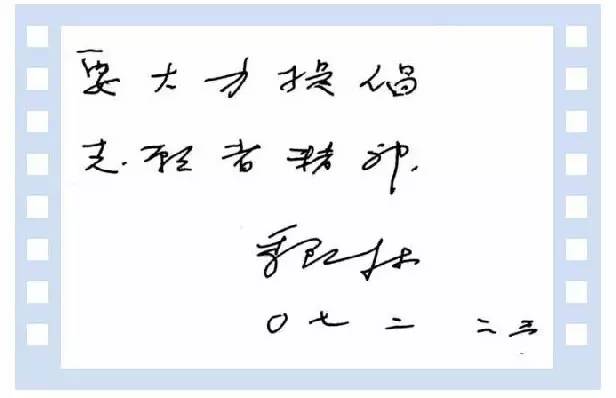 要大力提倡
志愿者精神.
季羡林
〇七 二 二三